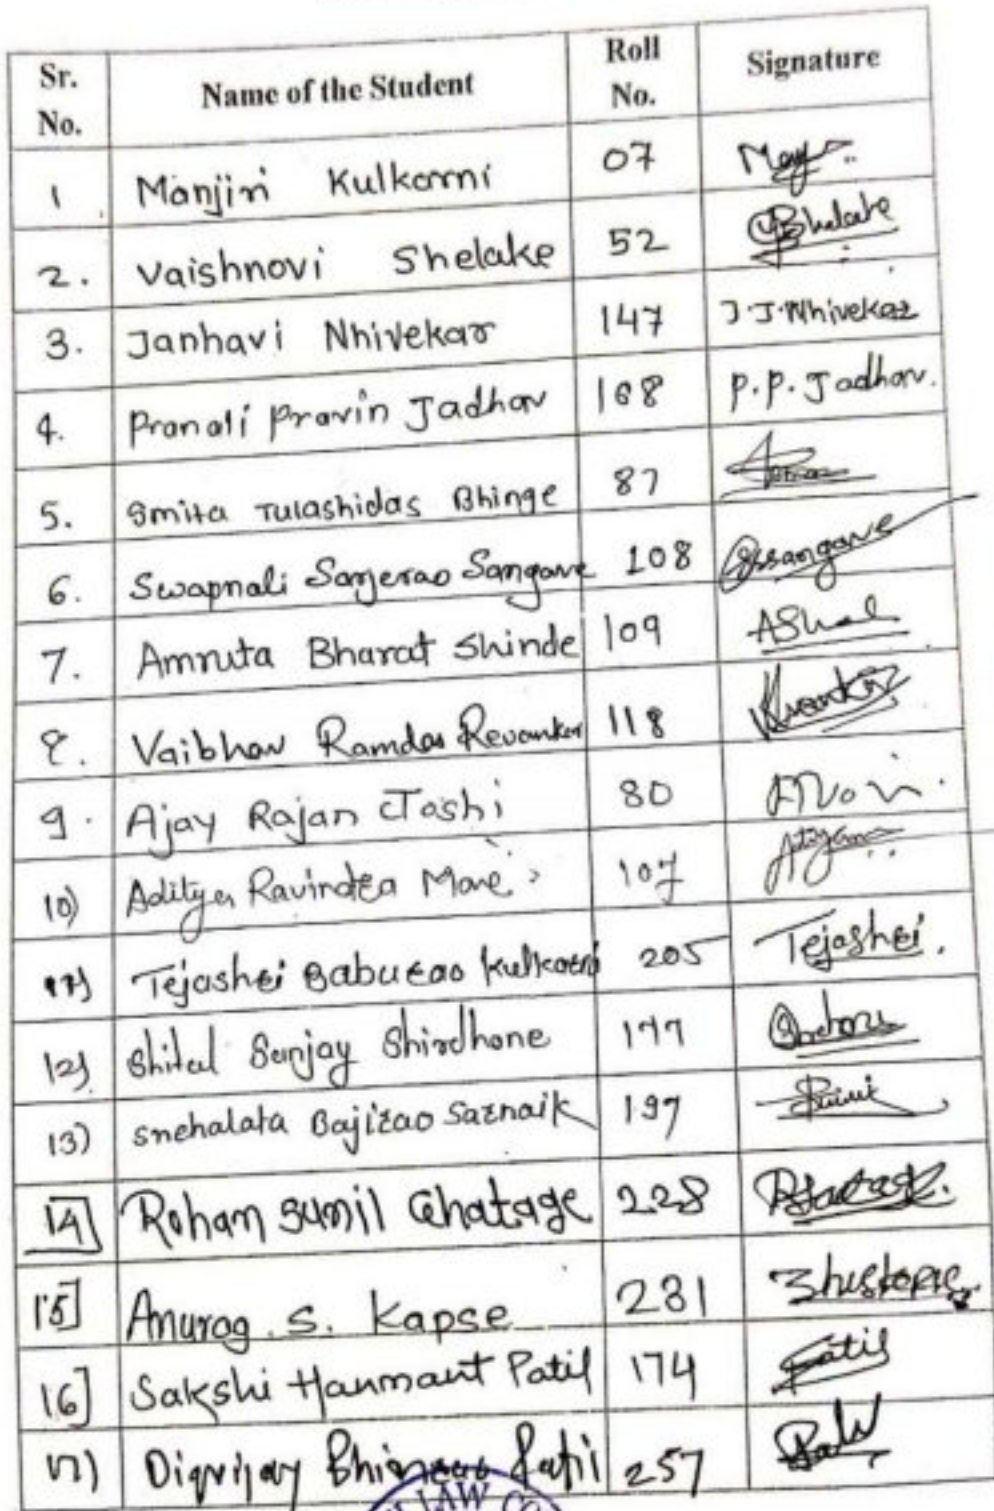 Sr. No. Name of the Student Roll No. Signature
1 Manjiri Kulkarni 07
2. Vaishnavi Shelake 52
3. Janhavi Nhivekar 147 J.J.Nhivekar
4. Pranali Pravin Jadhav 168 P.P. Jadhav.
5. Smita Tulashidas Bhinge 87
6. Swapnali Sarjerao Sangave 108 Sssangave
7. Amruta Bharat Shinde 109
8. Vaibhav Ramdas Revankar 118
9. Ajay Rajan Joshi 80
10) Aditya Ravindra More 107
11) Tejashri Baburao Kulkarni 205 Tejashri.
12) Shital Sanjay Shirdhone 177
13) Snehalata Bajirao Sarnaik 197
14] Rohan Sunil Ghatage 228
15] Anurag S. Kapse 231
16] Sakshi Hanmant Patil 174 Patil
17) Digvijay Bhimrao Patil 257
LAW CO